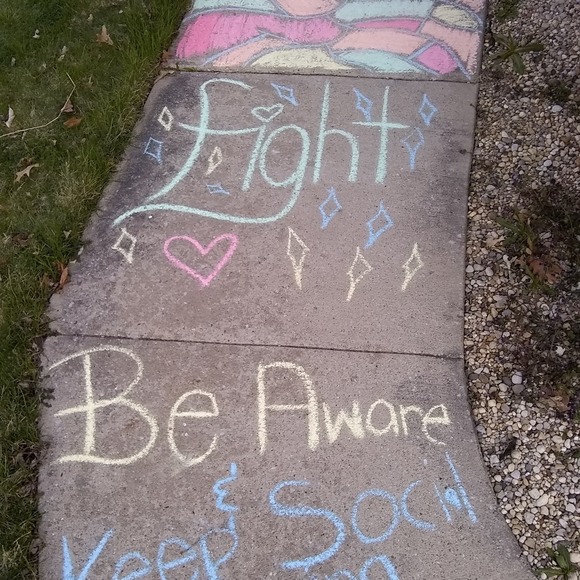 Fight
Be Aware
& Social
Keep